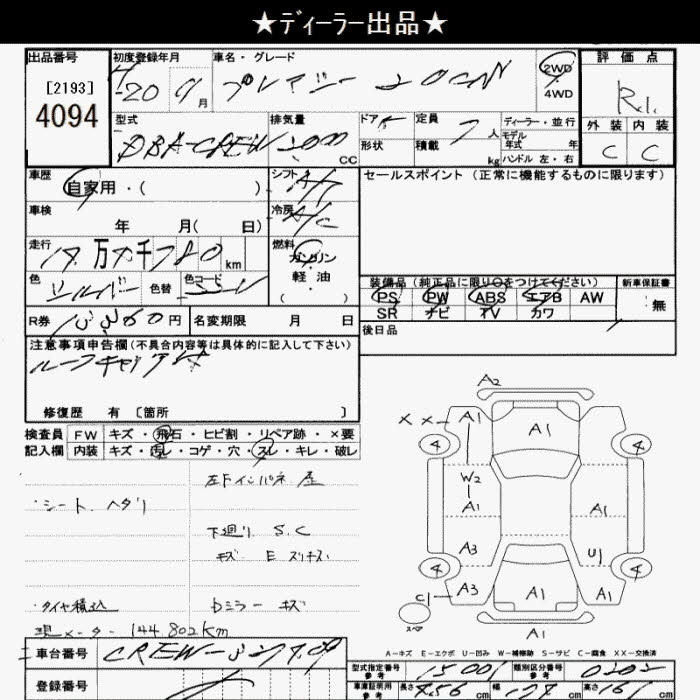 ★ディーラー出品★
出品番号 初度登録年月 車名・グレード 2WD 評価点
[2193] 20 9月 プレマシー 20CN 4WD R1.
4094
型式 排気量 ドア 定員 ディーラー・並行 外装 内装
DBA-CREW 2000 CC 形状 積載 7人 kg モデル年式 年 ハンドル 左・右 C C
車歴 シフト セールスポイント(正常に機能するものに限ります)
自家用・( ) A/T
車検 冷房
年 月( 日) A/C
走行 燃料
万 千 km ガソリン
色 色替 色コード 軽油 装備品(純正品に限り○をつけてください) 新車保証書
シルバー ( ) PS PW ABS エアB AW 無
SR ナビ TV カワ
R券 円 名変期限 月 日 後日品
注意事項申告欄(不具合内容等は具体的に記入して下さい)
ルーフキャリア
修復歴 有 〔箇所 〕
検査員 FW キズ・飛石・ヒビ割・リペア跡・×要
記入欄 内装 キズ・汚レ・コゲ・穴・スレ・キレ・破レ
左Fインパネ
・シート ヘタリ
下廻リ S.C
キズ E スリキズ
・タイヤ積込 Dミラー キズ
現メーター 144,802km
A2
X X A1 A1
4 4
W2
A1 A1
A3 U1
4 4
A3 A1 A1
C1
スペア A1
A-キズ E-エクボ U-凹み W-補修跡 S-サビ C-腐食 XX-交換済
車台番号 CREW-
型式指定番号 参考 15001 類別区分番号 参考 0202
登録番号
車庫証明用 参考 長さ 456 cm 幅 cm 高さ 161 cm